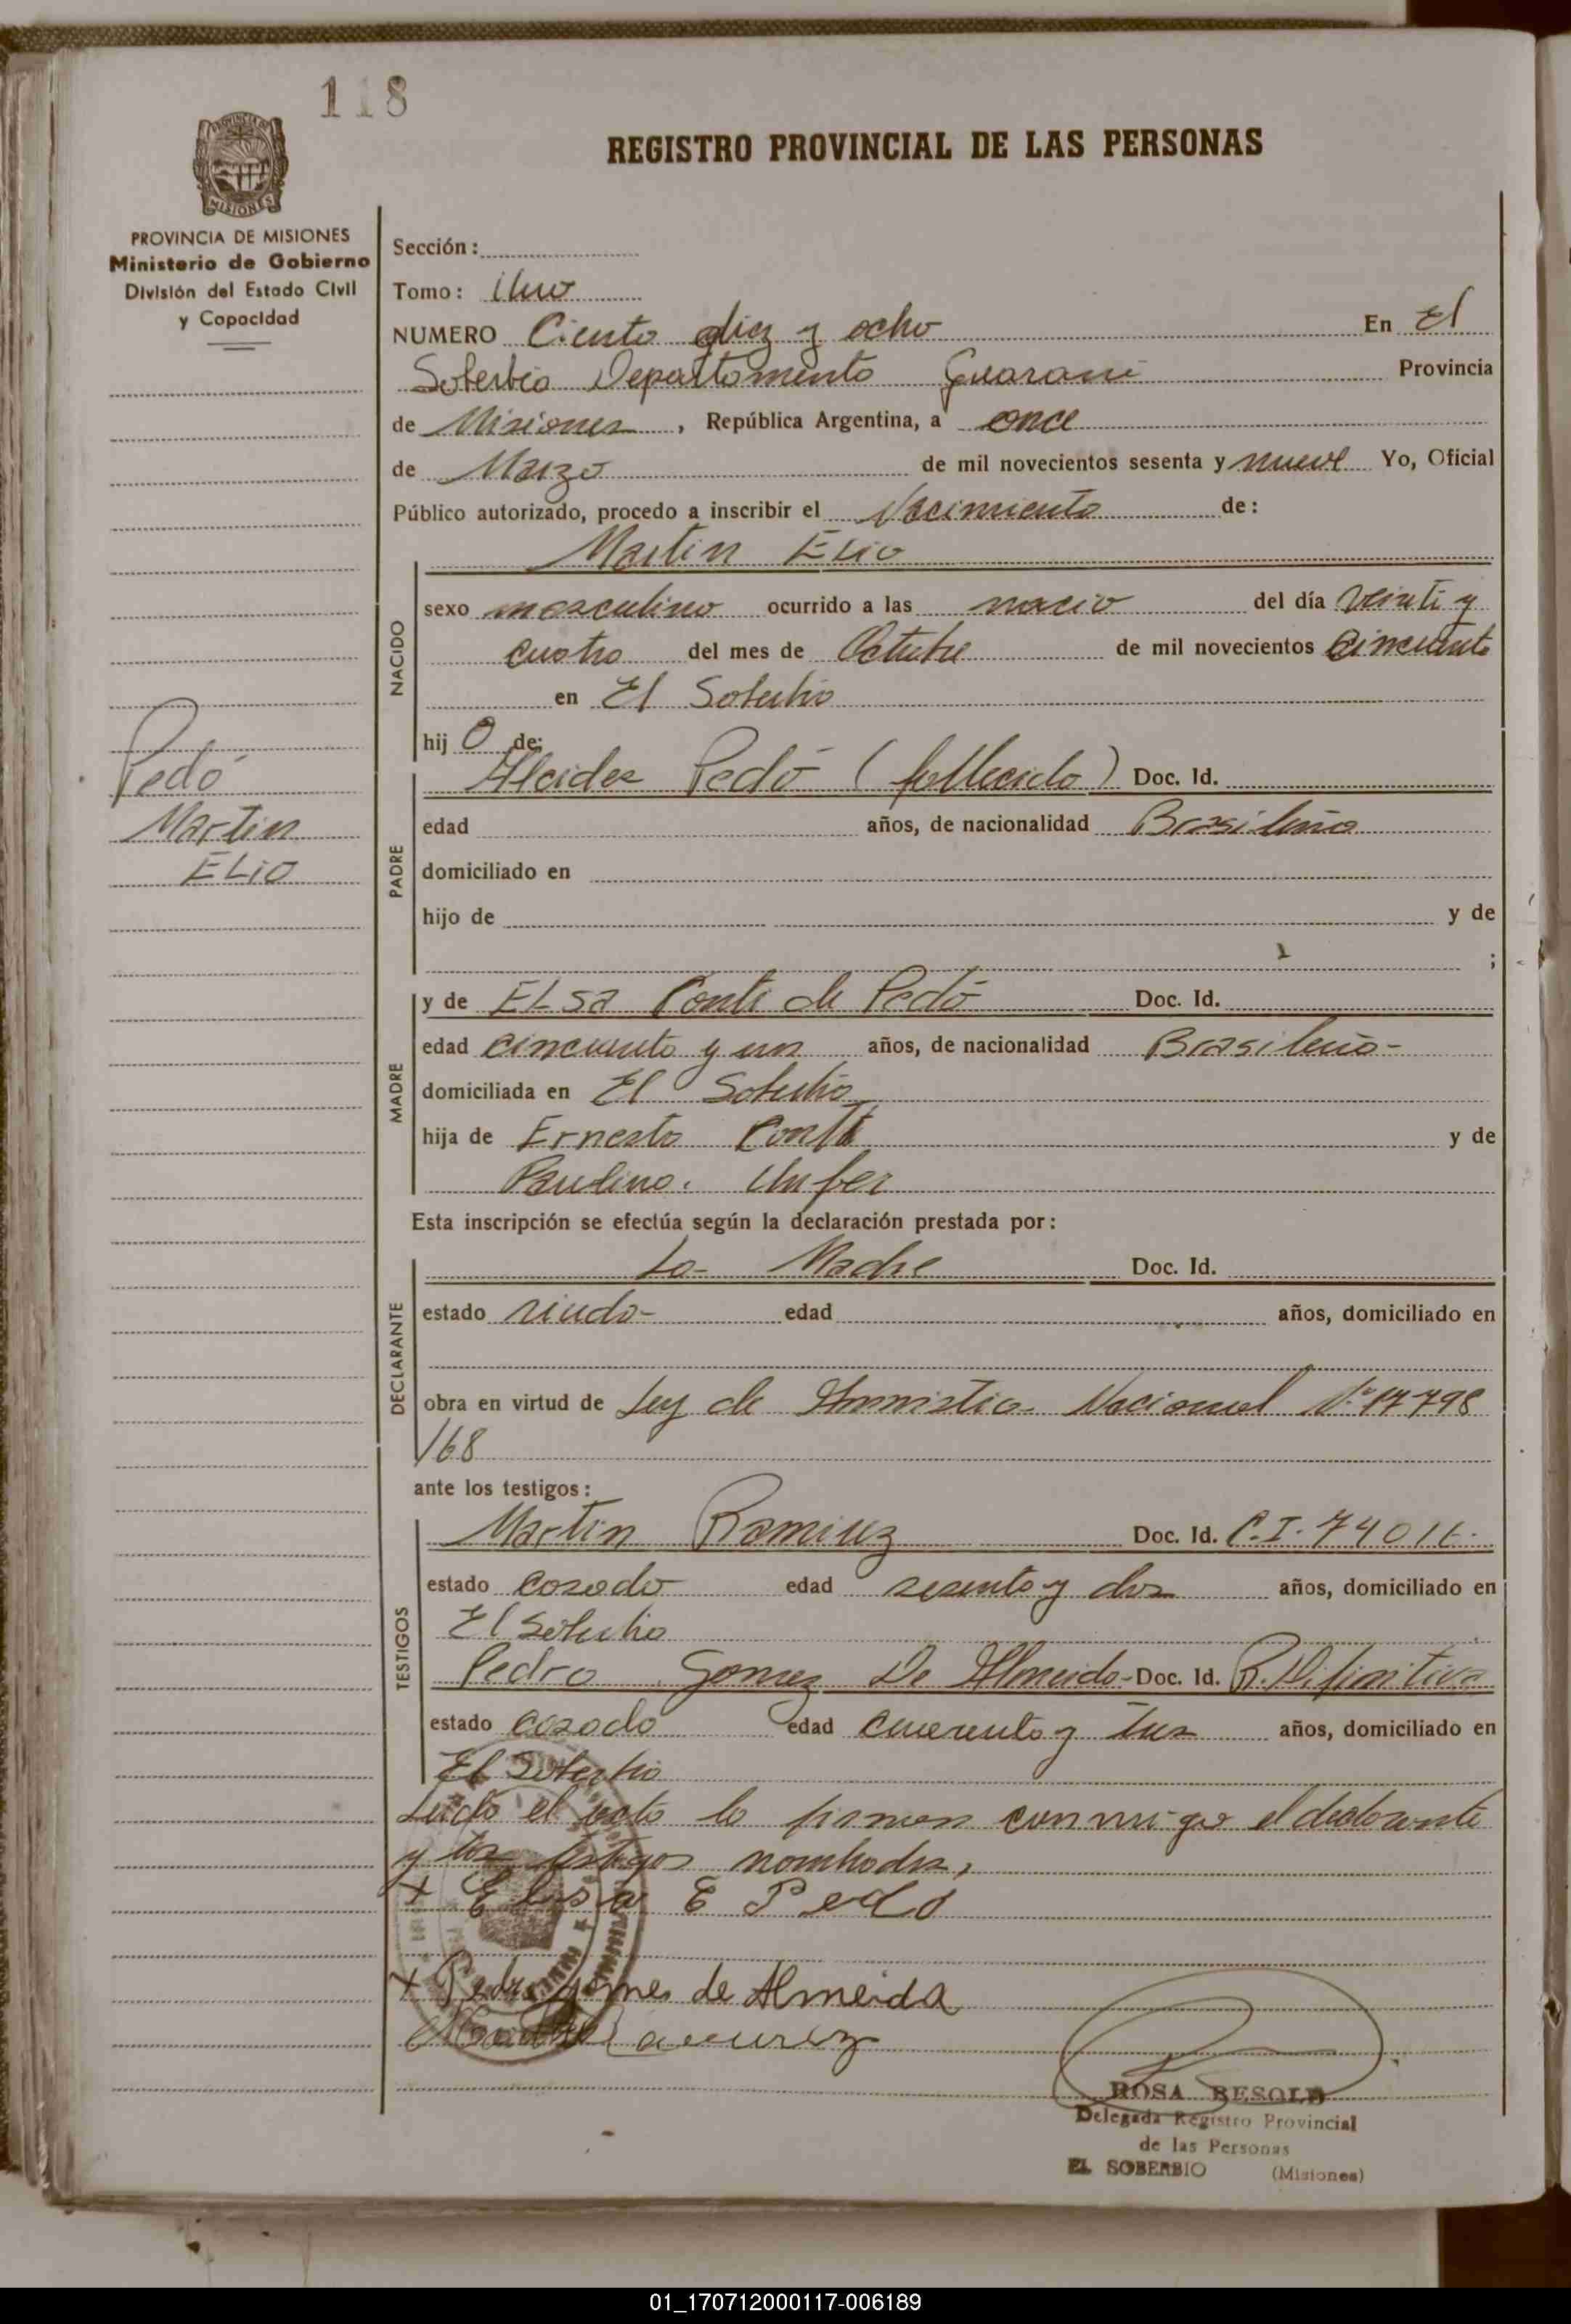 118
REGISTRO PROVINCIAL DE LAS PERSONAS
PROVINCIA DE MISIONES
MISIONES
PROVINCIA DE MISIONES
Ministerio de Gobierno
División del Estado Civil
y Capacidad
Pedó
Martin
ELio
Sección:
Tomo: Uno
NUMERO Ciento diez y ocho En El
Soberbio Departamento Guarani Provincia
de Misiones, República Argentina, a once
de Marzo de mil novecientos sesenta y nueve Yo, Oficial
Público autorizado, procedo a inscribir el Nacimiento de:
Martin ELio
NACIDO
sexo masculino ocurrido a las nacio del día veinti y
cuatro del mes de Octubre de mil novecientos cincuenta
en El Soberbio
hij o de:
PADRE
Alcides Pedó (fallecido) Doc. Id.
edad años, de nacionalidad Brasileña
domiciliado en
hijo de y de
;
MADRE
y de ELsa Conti de Pedó Doc. Id.
edad cincuenta y un años, de nacionalidad Brasileña-
domiciliada en El Soberbio
hija de Ernesto Conti y de
Paulina
Esta inscripción se efectúa según la declaración prestada por:
DECLARANTE
La Madre Doc. Id.
estado viuda- edad años, domiciliado en
obra en virtud de Ley de Amnistia Nacional Nº 17798
/68
ante los testigos:
TESTIGOS
Martin Ramirez Doc. Id. C.I. 74011.
estado casado edad sesenta y dos años, domiciliado en
El Soberbio
Pedro Gomez De Almeida- Doc. Id. R. Difinitiva
estado casado edad cuarenta y tres años, domiciliado en
El Soberbio
Leido el acta la firman conmigo el declarante
y los testigos nombrados,
+ Elsa E Pedó
+ Pedro gomes de Almeida
Ramirez
ROSA BESOLD
Delegada Registro Provincial
de las Personas
EL SOBERBIO (Misiones)
01_170712000117-006189